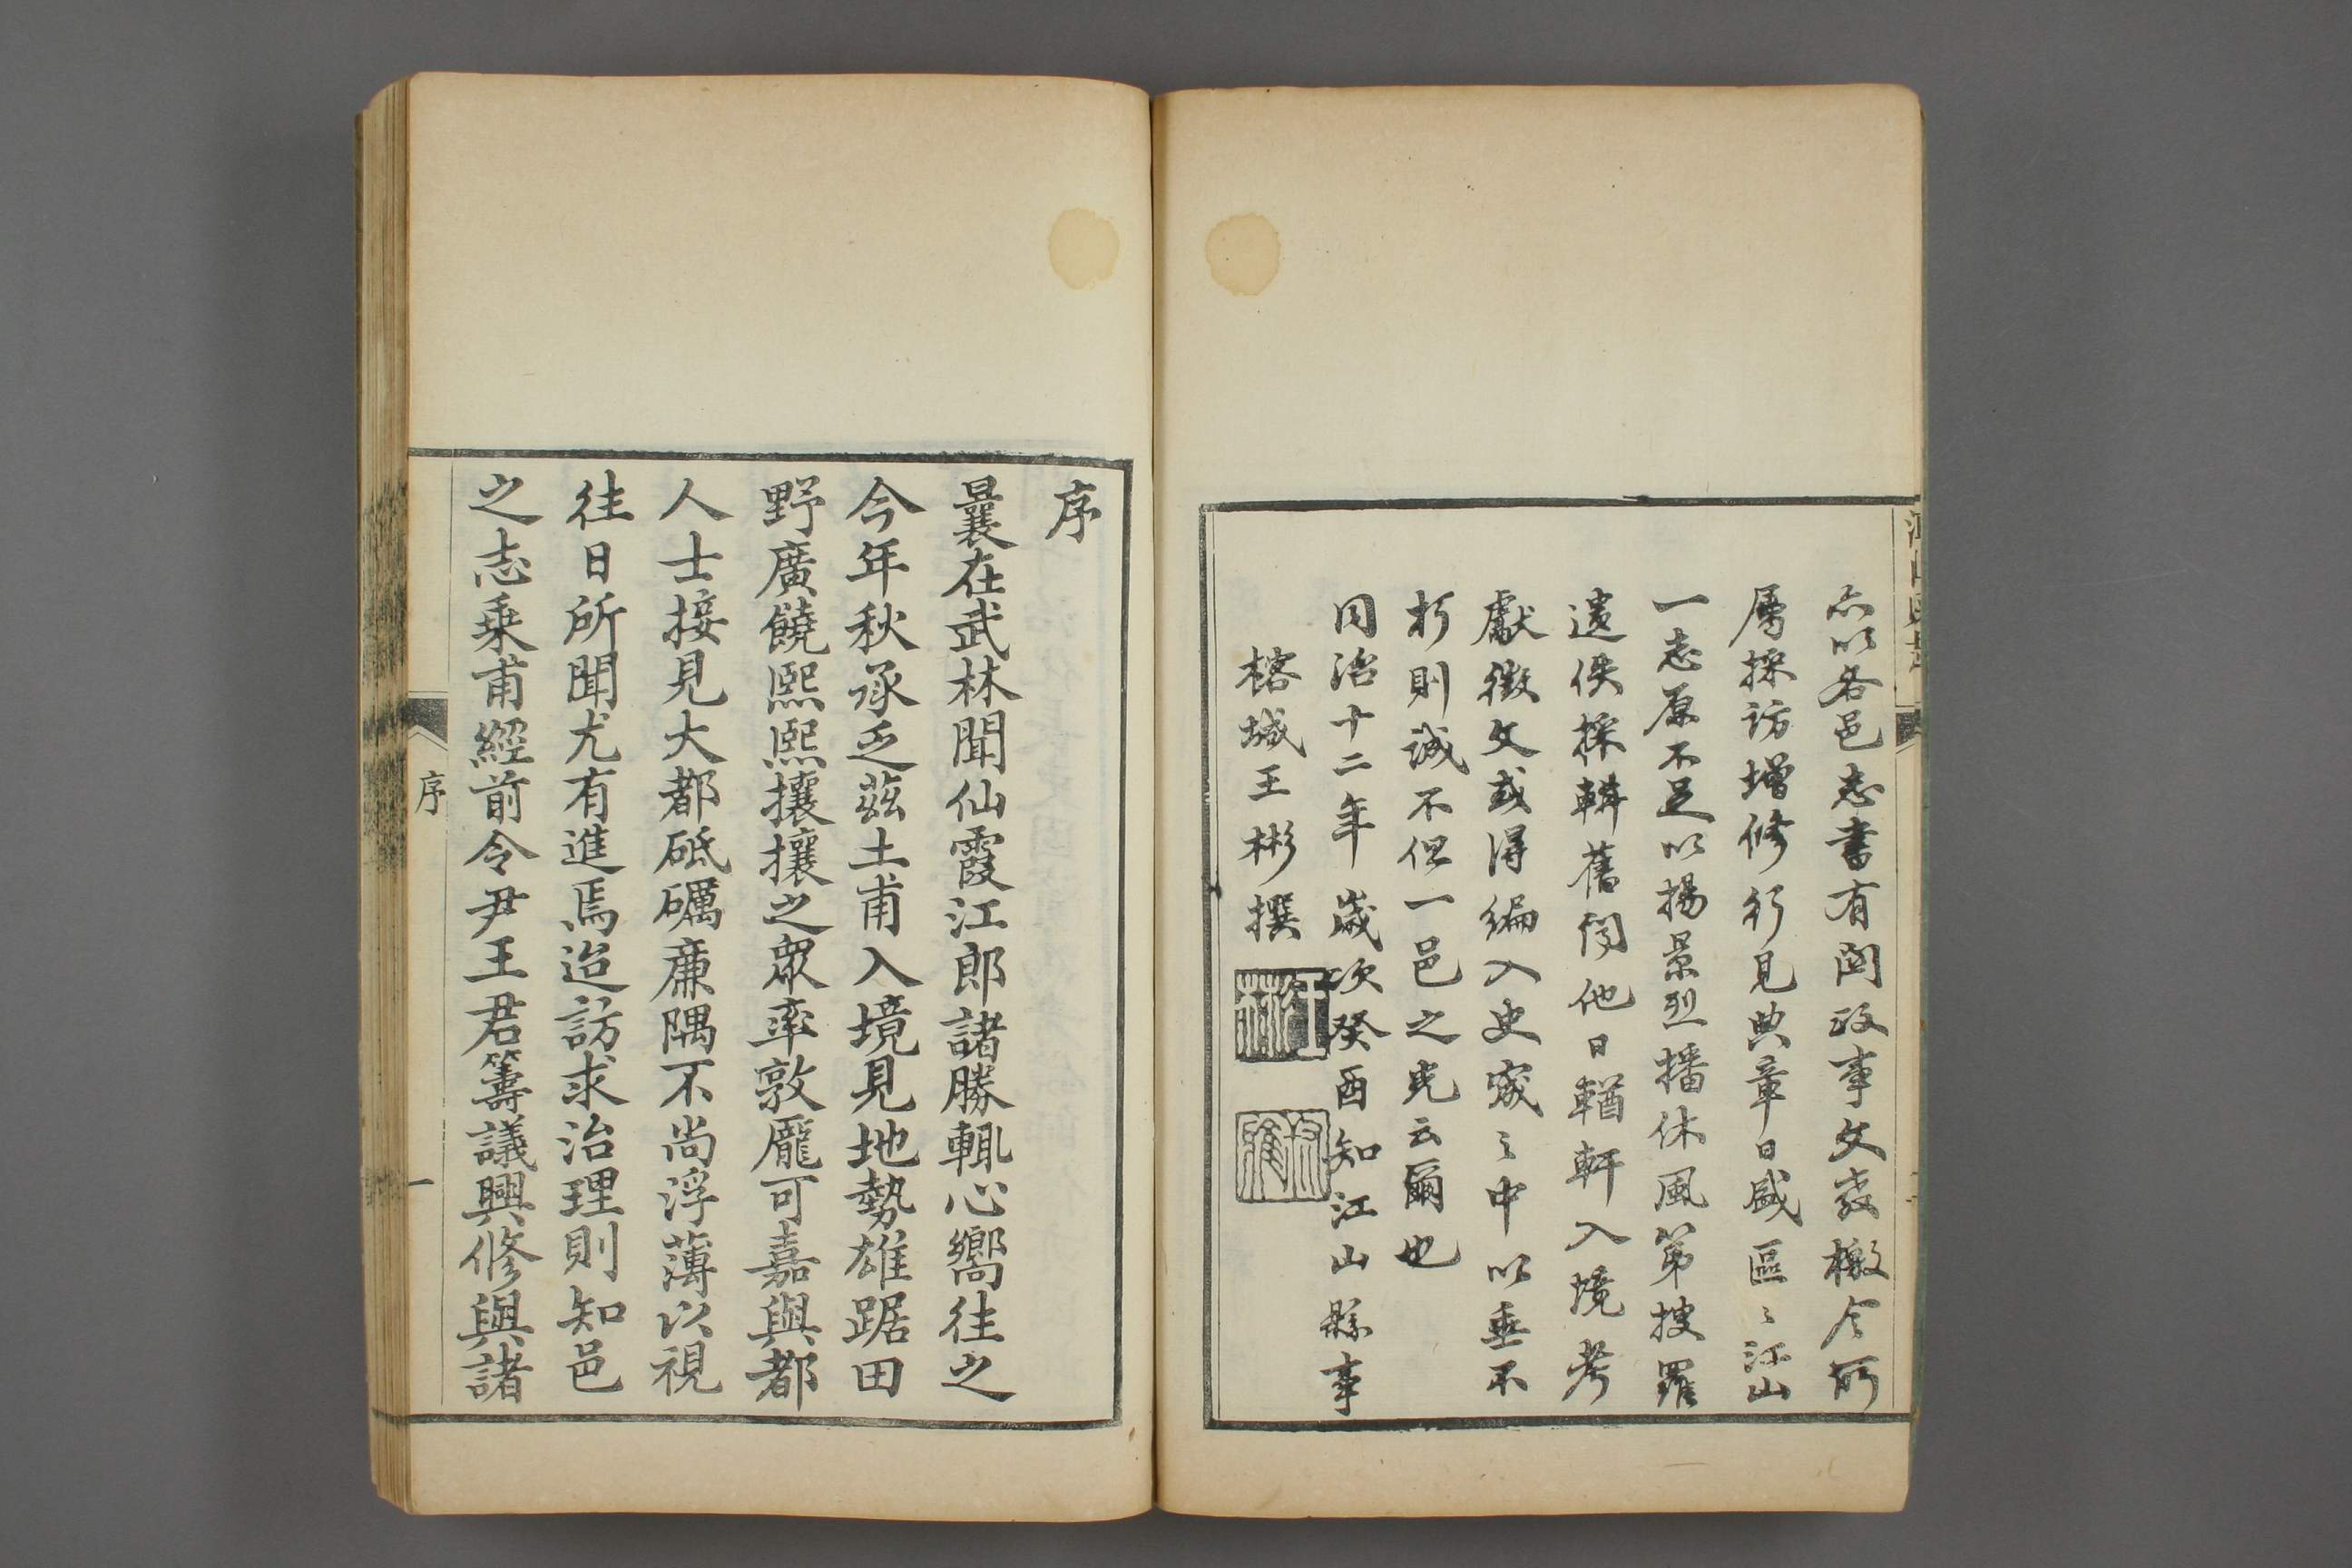 江山縣志
亦以各邑志書有關政事文教檄令所
屬採訪增修行見典章日盛區〻江山
一志原不足以揚景烈播休風第搜羅
遺佚採輯舊聞他日輶軒入境考
獻徵文或得編入史宬〻中以垂不
朽則誠不但一邑之光云爾也
同治十二年歲次癸酉知江山縣事
榕城王彬撰
王彬
序
曩在武林聞仙霞江郎諸勝輒心嚮往之
今年秋承乏茲土甫入境見地勢雄踞田
野廣饒熙熙攘攘之眾率敦龐可嘉與都
人士接見大都砥礪廉隅不尚浮薄以視
往日所聞尤有進焉迨訪求治理則知邑
之志乘甫經前令尹王君籌議興修與諸
序
一